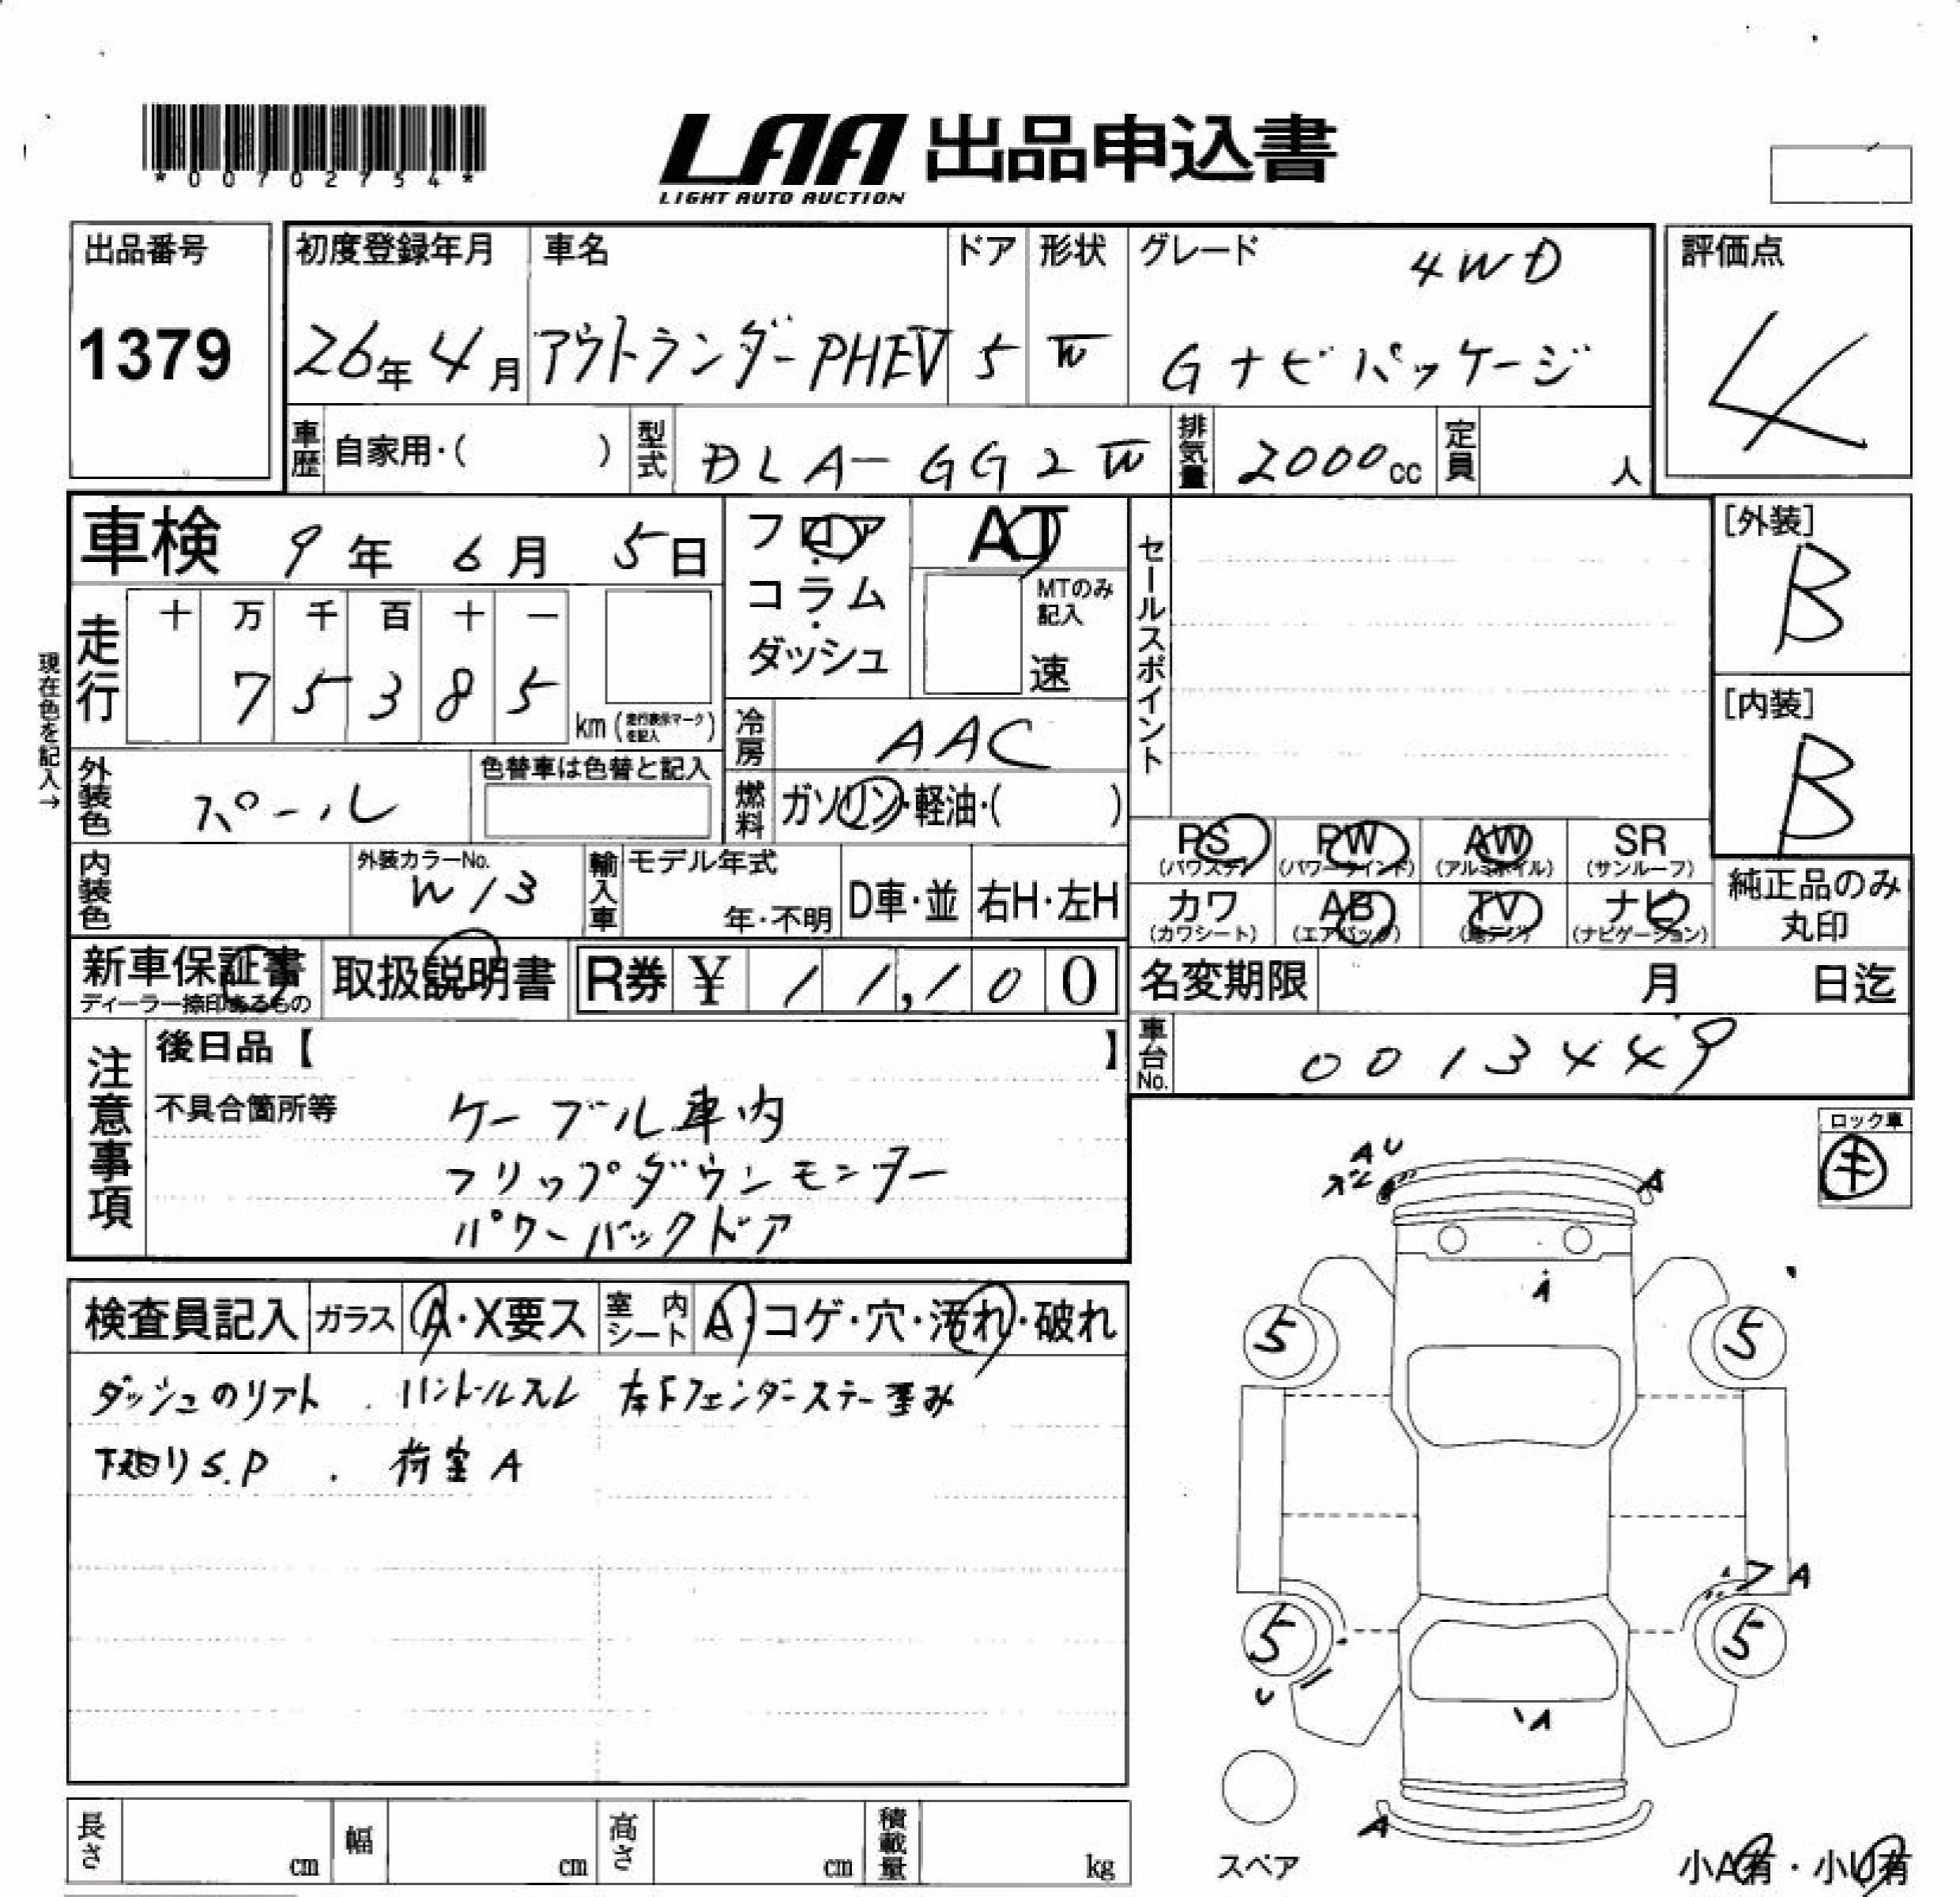 *00702754*
LAA 出品申込書
LIGHT AUTO AUCTION
出品番号
1379
初度登録年月
26年4月
車名
アウトランダーPHEV
ドア
5
形状
W
グレード
4WD
Gナビパッケージ
評価点
4
車歴
自家用・( )
型式
DLA-GG2W
排気量
2000cc
定員
人
車検 9年 6月 5日
フロア・コラム・ダッシュ
AT
MTのみ記入
速
セールスポイント
[外装]
B
[内装]
B
現在色を記入→
走行
十 万 千 百 十 一
7 5 3 8 5
km (走行表示マークを記入)
冷房
AAC
外装色
パール
色替車は色替と記入
燃料
ガソリン・軽油・( )
内装色
外装カラーNo.
W13
輸入車
モデル年式
年・不明
D車・並
右H・左H
PS
(パワステ)
PW
(パワーウインド)
AW
(アルミホイル)
SR
(サンルーフ)
カワ
(カワシート)
AB
(エアバック)
TV
(地デジ)
ナビ
(ナビゲーション)
純正品のみ
丸印
新車保証書
ディーラー捺印あるもの
取扱説明書
R券 ¥ 11,100
名変期限 月 日迄
車台No.
0013449
注意事項
後日品【 】
不具合箇所等
ケーブル車内
フリップダウンモニター
パワーバックドア
ロック車
キ
検査員記入
ガラス
A・X要ス
室内シート
A・コゲ・穴・汚れ・破れ
ダッシュのリフト . ハンドルスレ 左Fフェンダーステー歪み
下廻りS.P . 荷室A
A U
A
A
5
5
A
5
5
U
A
A
スペア
小A有・小U有
長さ cm
幅 cm
高さ cm
積載量 kg